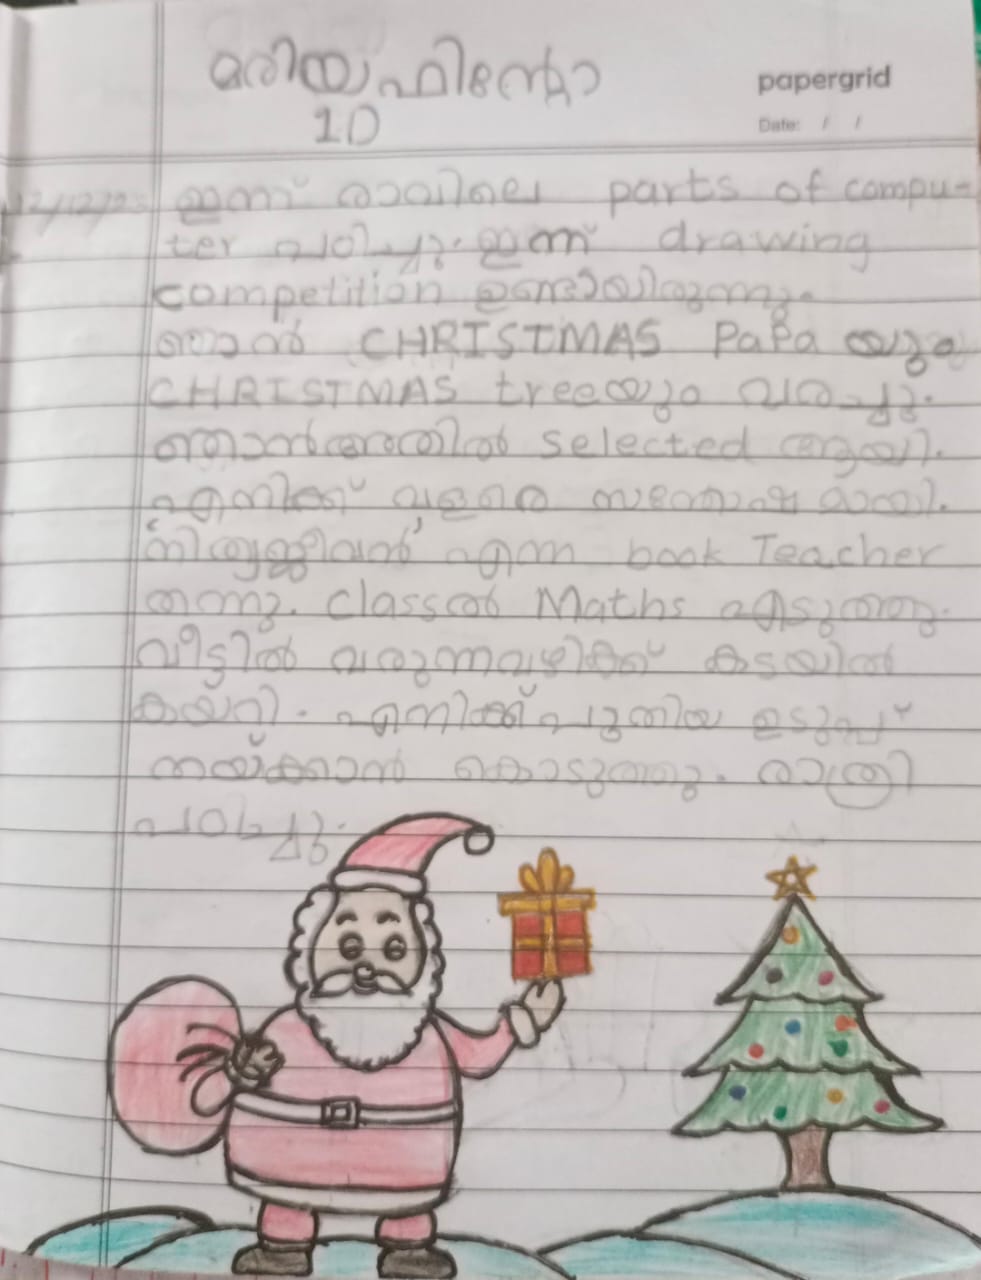 മരിയ ഫിന്റോ
1D
papergrid
Date: / /
12/12/25 ഇന്ന് രാവിലെ parts of compu-
ter പഠിച്ചു. ഇന്ന് drawing
competition ഉണ്ടായിരുന്നു.
ഞാൻ CHRISTMAS PaPa യും
CHRISTMAS treeയും വരച്ചു.
ഞാൻ അതിൽ selected ആയി.
എനിക്ക് വളരെ സന്തോഷമായി.
'നിത്യജീവൻ' എന്ന book Teacher
തന്നു. classൽ Maths എടുത്തു.
വീട്ടിൽ വരുന്നവഴിക്ക് കടയിൽ
കയറി. എനിക്ക് പുതിയ ഉടുപ്പ്
തയ്ക്കാൻ കൊടുത്തു. രാത്രി
പഠിച്ചു.